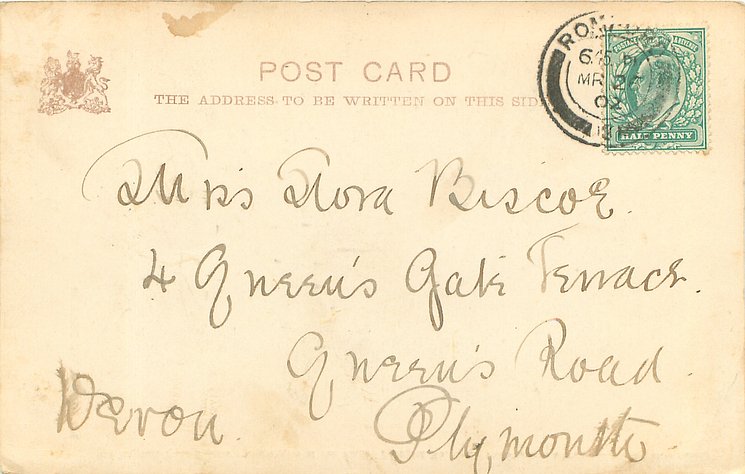 POST CARD
THE ADDRESS TO BE WRITTEN ON THIS SIDE
6.15 P
MR 24
02
HALF PENNY
Miss Nora Biscoe.
4 Queen's Gate Terrace.
Queen's Road.
Plymouth
Devon.